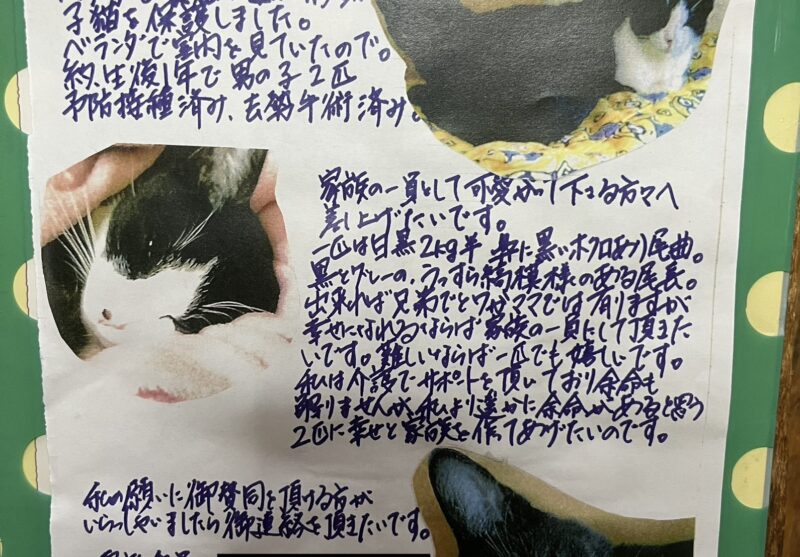 子猫を保護しました。
ベランダで室内を見ていたので。
約、生後1年で男の子2匹
予防接種済み、去勢手術済み。
家族の一員として可愛がって下さる方々へ
差し上げたいです。
一匹は白黒2kg半 鼻に黒いホクロあり尾曲。
黒とグレーの、うっすら縞模様のある尾長。
出来れば兄弟でとワガママでは有りますが
幸せになれるならば家族の一員にして頂きた
いです。難しいならば一匹でも嬉しいです。
私は介護でサポートを頂いており余命も
解りませんが、私より遥かに余命があると思う
2匹に幸せと家族を作ってあげたいのです。
私の願いに御賛同を頂ける方が
いらっしゃいましたら御連絡を頂きたいです。